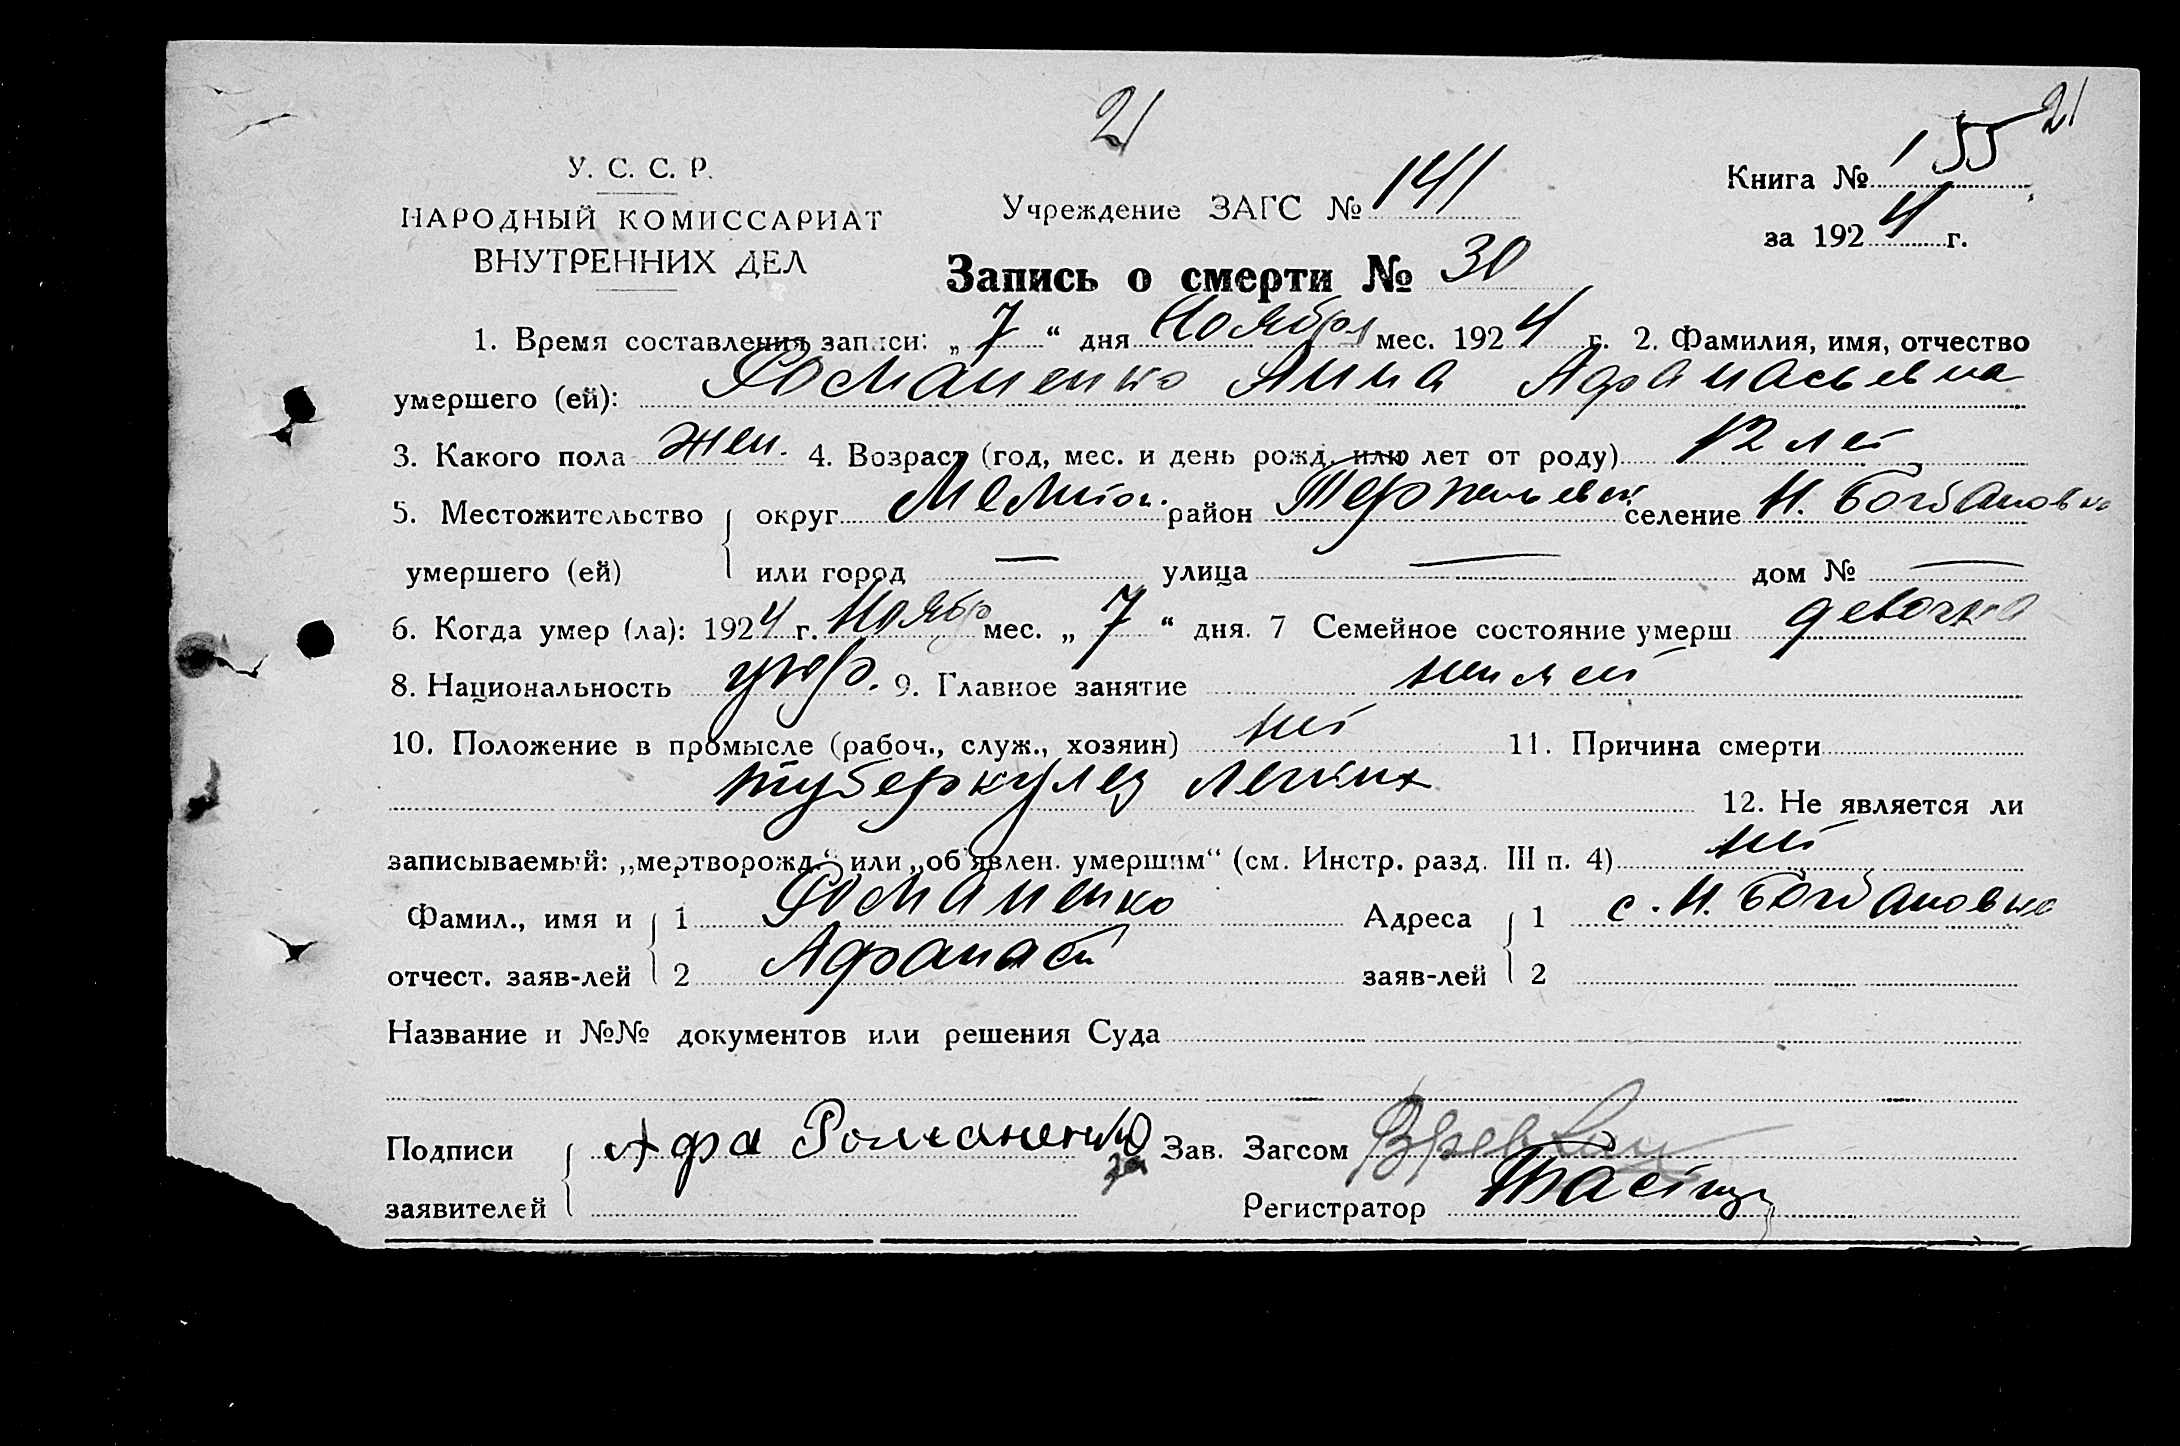 21
155 21
У. С. С. Р.
НАРОДНЫЙ КОМИССАРИАТ
ВНУТРЕННИХ ДЕЛ
Учреждение ЗАГС № 141
Книга № 155
за 1924 г.
Запись о смерти № 30
1. Время составления записи: „7“ дня Ноября мес. 1924 г. 2. Фамилия, имя, отчество
умершего (ей): Романенко Анна Афанасьевна
3. Какого пола жен. 4. Возраст (год, мес. и день рожд. или лет от роду) 12 лет
5. Местожительство округ Мелитоп. район Терпеньевск селение Н. Богдановка
умершего (ей) или город — улица — дом № —
6. Когда умер (ла): 1924 г. Ноябр мес. „7“ дня. 7 Семейное состояние умерш девочка
8. Национальность укр. 9. Главное занятие
10. Положение в промысле (рабоч., служ., хозяин) нет 11. Причина смерти
туберкулез легких 12. Не является ли
записываемый: „мертворожд.“ или „об'явлен. умершим“ (см. Инстр. разд. III п. 4) нет
Фамил., имя и 1 Романенко Адреса 1 с. Н. Богдановка
отчест. заяв-лей 2 Афанасий заяв-лей 2
Название и №№ документов или решения Суда
Подписи Афа Романенко за Зав. Загсом
заявителей Регистратор